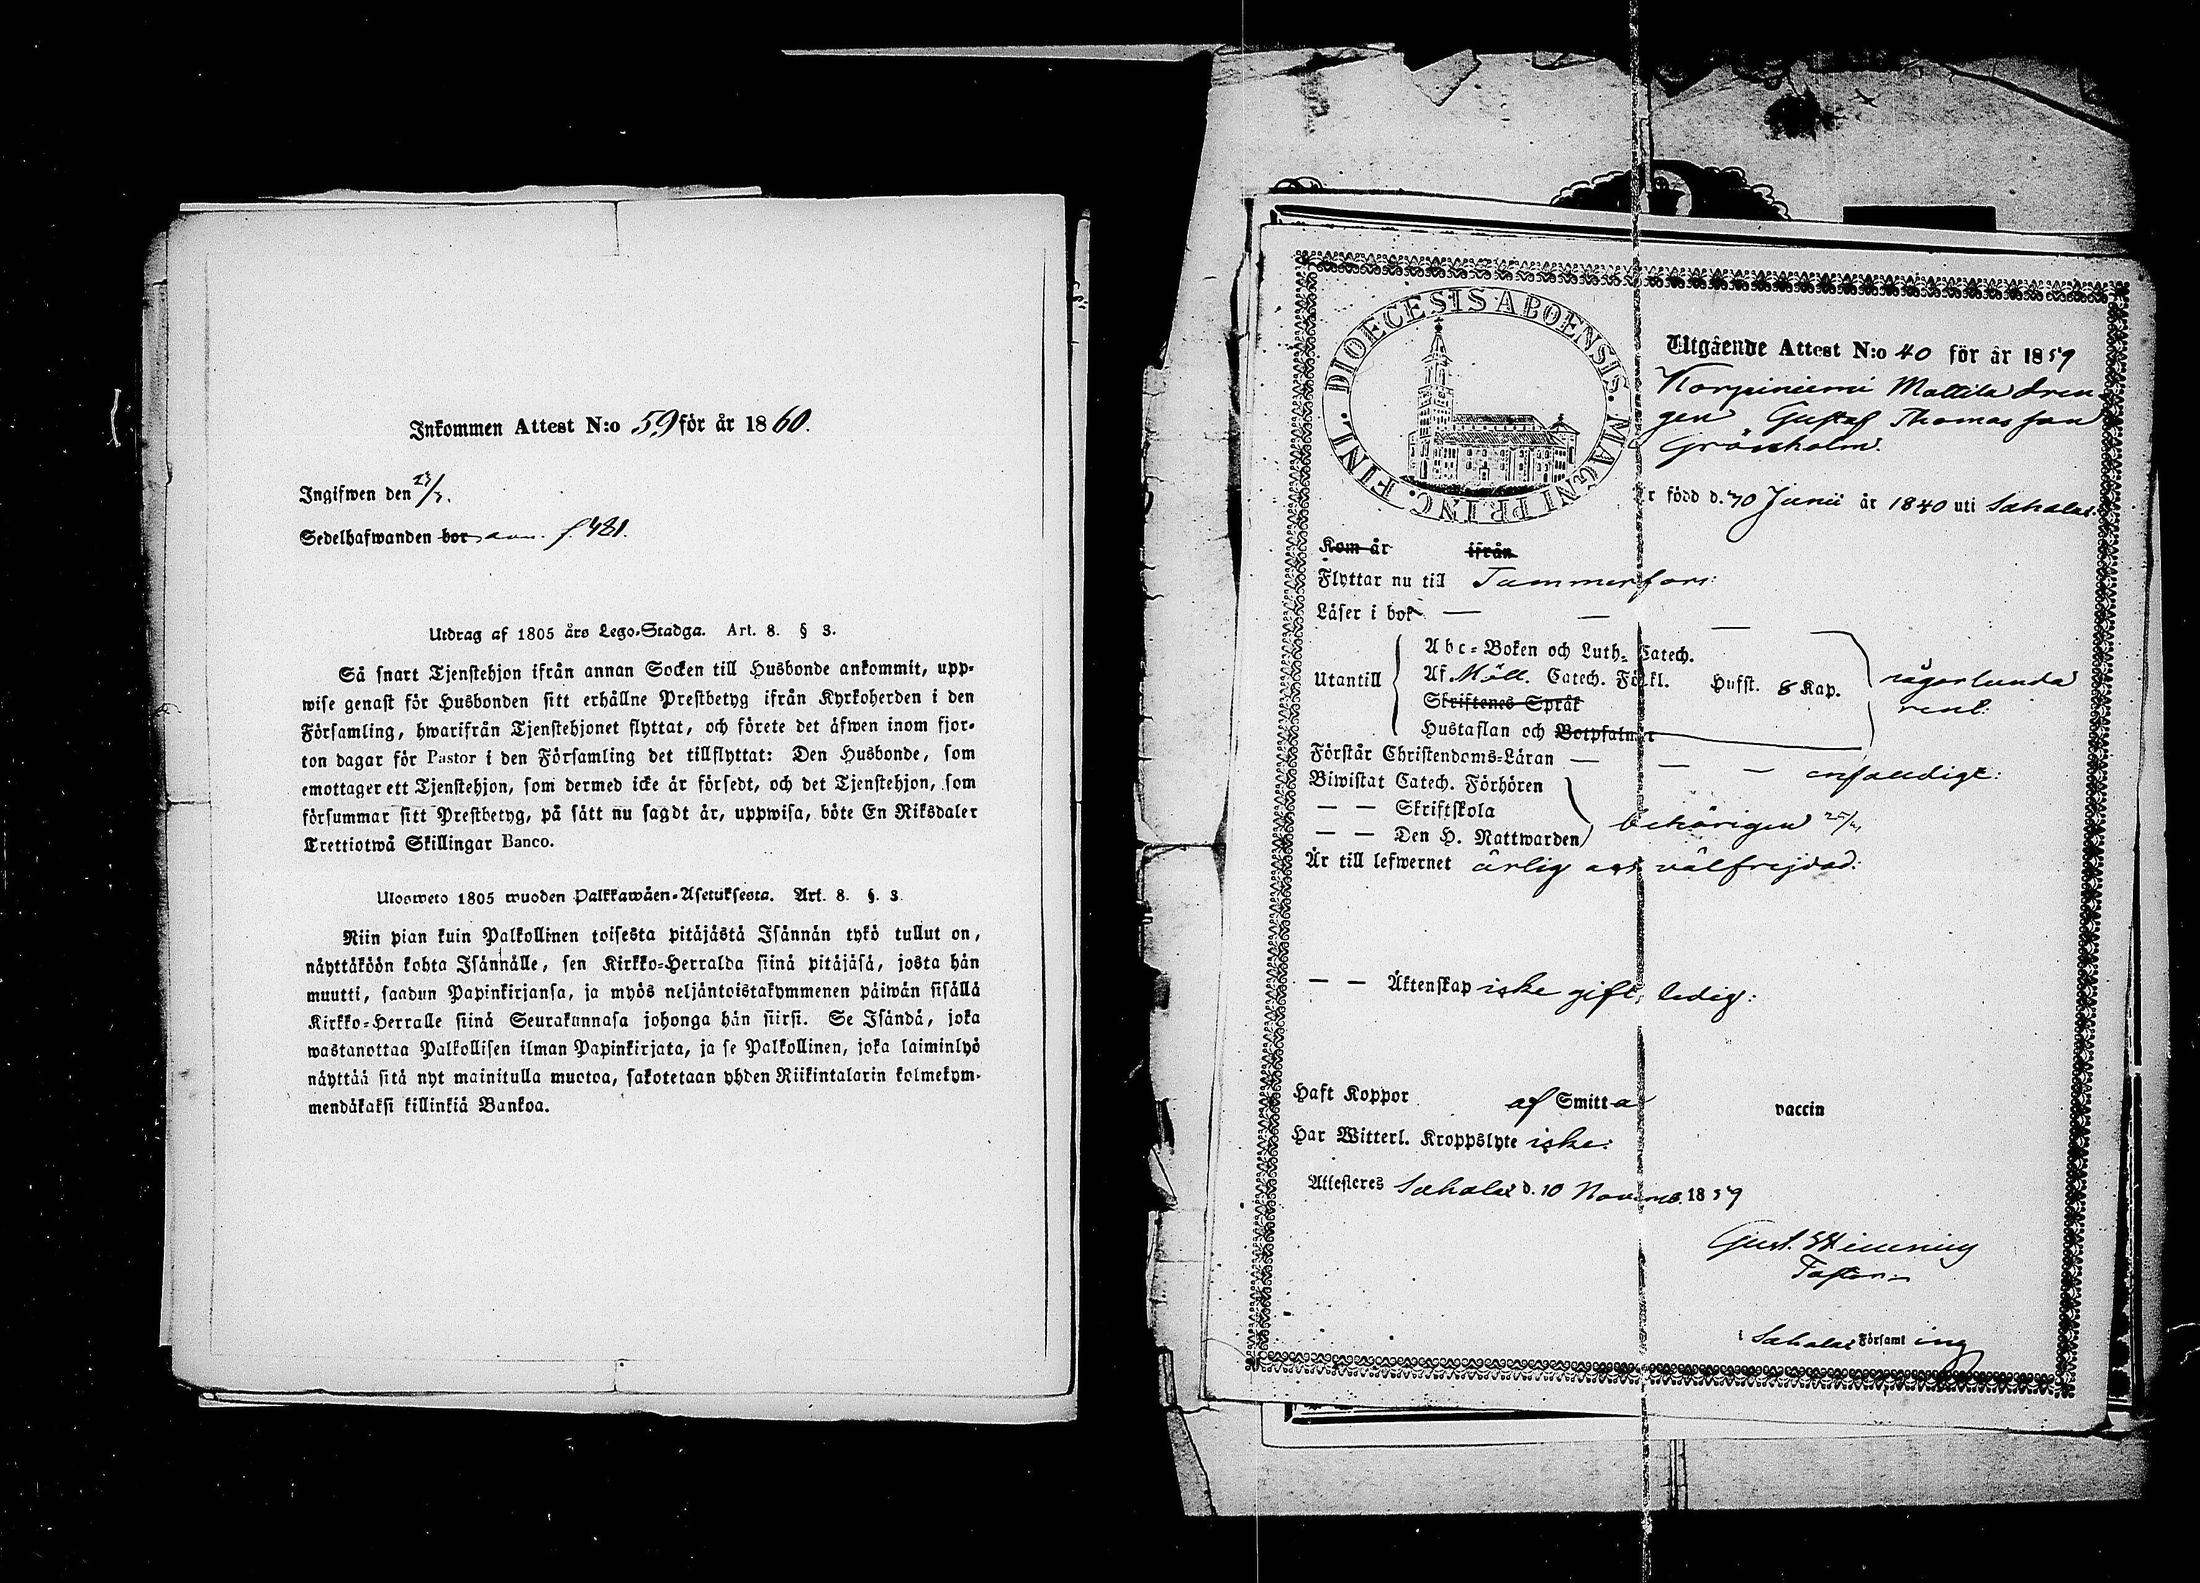 Inkommen Attest N:o 59 för år 1860.
Ingifwen den 23/3.
Sedelhafwanden bor ann. f. 481.
Utdrag af 1805 års Lego-Stadga. Art. 8. § 3.
Så snart Tjenstehjon ifrån annan Socken till Husbonde ankommit, upp-
wise genast för Husbonden sitt erhållne Prestbetyg ifrån Kyrkoherden i den
Församling, hwarifrån Tjenstehjonet flyttat, och förete det äfwen inom fjor-
ton dagar för Pastor i den Församling det tillflyttat: Den Husbonde, som
emottager ett Tjenstehjon, som dermed icke är försedt, och det Tjenstehjon, som
försummar sitt Prestbetyg, på sätt nu sagdt är, uppwisa, böte En Riksdaler
Trettiotwå Skillingar Banco.
Ulosweto 1805 wuoden Palkkawäen-Asetuksesta. Art. 8. §. 3.
Niin pian kuin Palkollinen toisesta pitäjästä Isännän tykö tullut on,
näyttäköön kohta Isännälle, sen Kirkko-Herralda siinä pitäjäsä, josta hän
muutti, saadun Papinkirjansa, ja myös neljäntoistakymmenen päiwän sisällä
Kirkko-Herralle siinä Seurakunnasa johonga hän siirsi. Se Isändä, joka
wastanottaa Palkollisen ilman Papinkirjata, ja se Palkollinen, joka laiminlyö
näyttää sitä nyt mainitulla muotoa, sakotetaan yhden Riikintalarin kolmekym-
mendäkaksi killinkiä Bankoa.
DIOECESIS ABOENSIS. MAGNI PRINC. FINL.
Utgående Attest N:o 40 för år 1859
Korpiniemi Mattila dren-
gen Gustaf Thomasson
Grönholm.
r född d. 10 Junii år 1840 uti Sahalax.
Kom år ifrån
Flyttar nu till Tammerfors:
Läser i bok — — —
Utantill
Abc-Boken och Luth. Catech.
Af Möll. Catech. Förkl. Husst. 8 Kap.
någorlunda
rent.
Skriftenes Språk
Hustaflan och Botpsalmer
Förstår Christendoms-Läran — — — enfaldigt:
Biwistat Catech. Förhören
— — Skriftskola
— — Den H. Nattwarden
behörigen
Är till lefwernet ärlig och välfrejdad:
— — Äktenskap icke gift, ledig:
Haft Koppor af Smitta vaccin
Har Witterl. Kroppslyte icke:
Attesteres Sahalax d. 10 Novemb. 1859
Gust.
Pastor
i Sahalax Församling